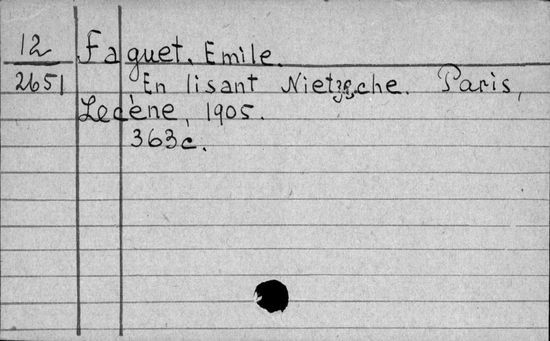 12 Faguet, Emile.
2651 En lisant Nietzsche. Paris,
Lecène, 1905.
363c.